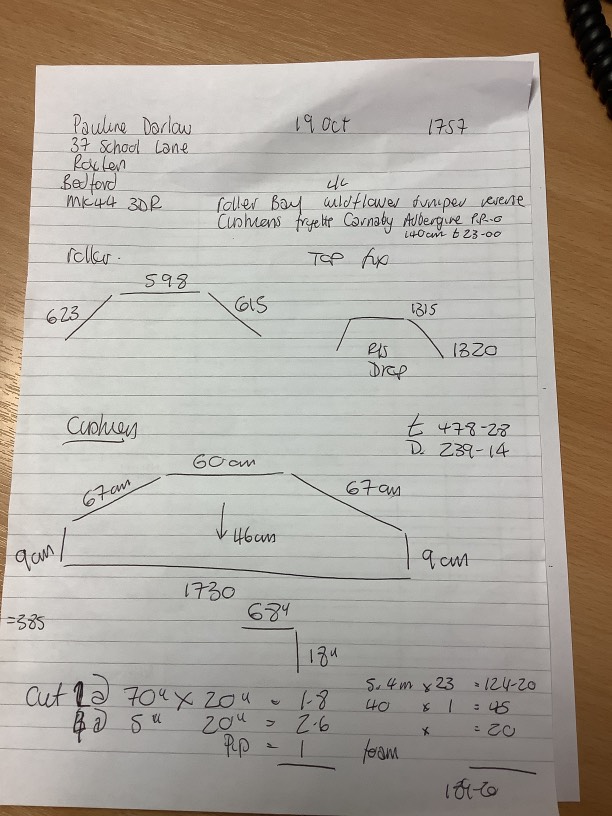 Pauline Darlow 19 Oct 1757
37 School Lane
Roxton
Bedford c/c
MK44 3DR roller Bay wildflower Juniper reverse
Cushions fryette Carnaby Aubergine P.R-0
140cm £23-00
roller. Top fix
598
623 615 1315
R/S 1320
Drop
Cushions t 478-28
D. 239-14
60cm
67cm 67cm
46cm
9cm 9cm
1730
=385 68"
18"
Cut 1 @ 70" x 20" = 1.8 5.4m x 23 = 124-20
@ 5" 20" = 2.6 40 x 1 = 45
x = 20
Pip = 1 foam